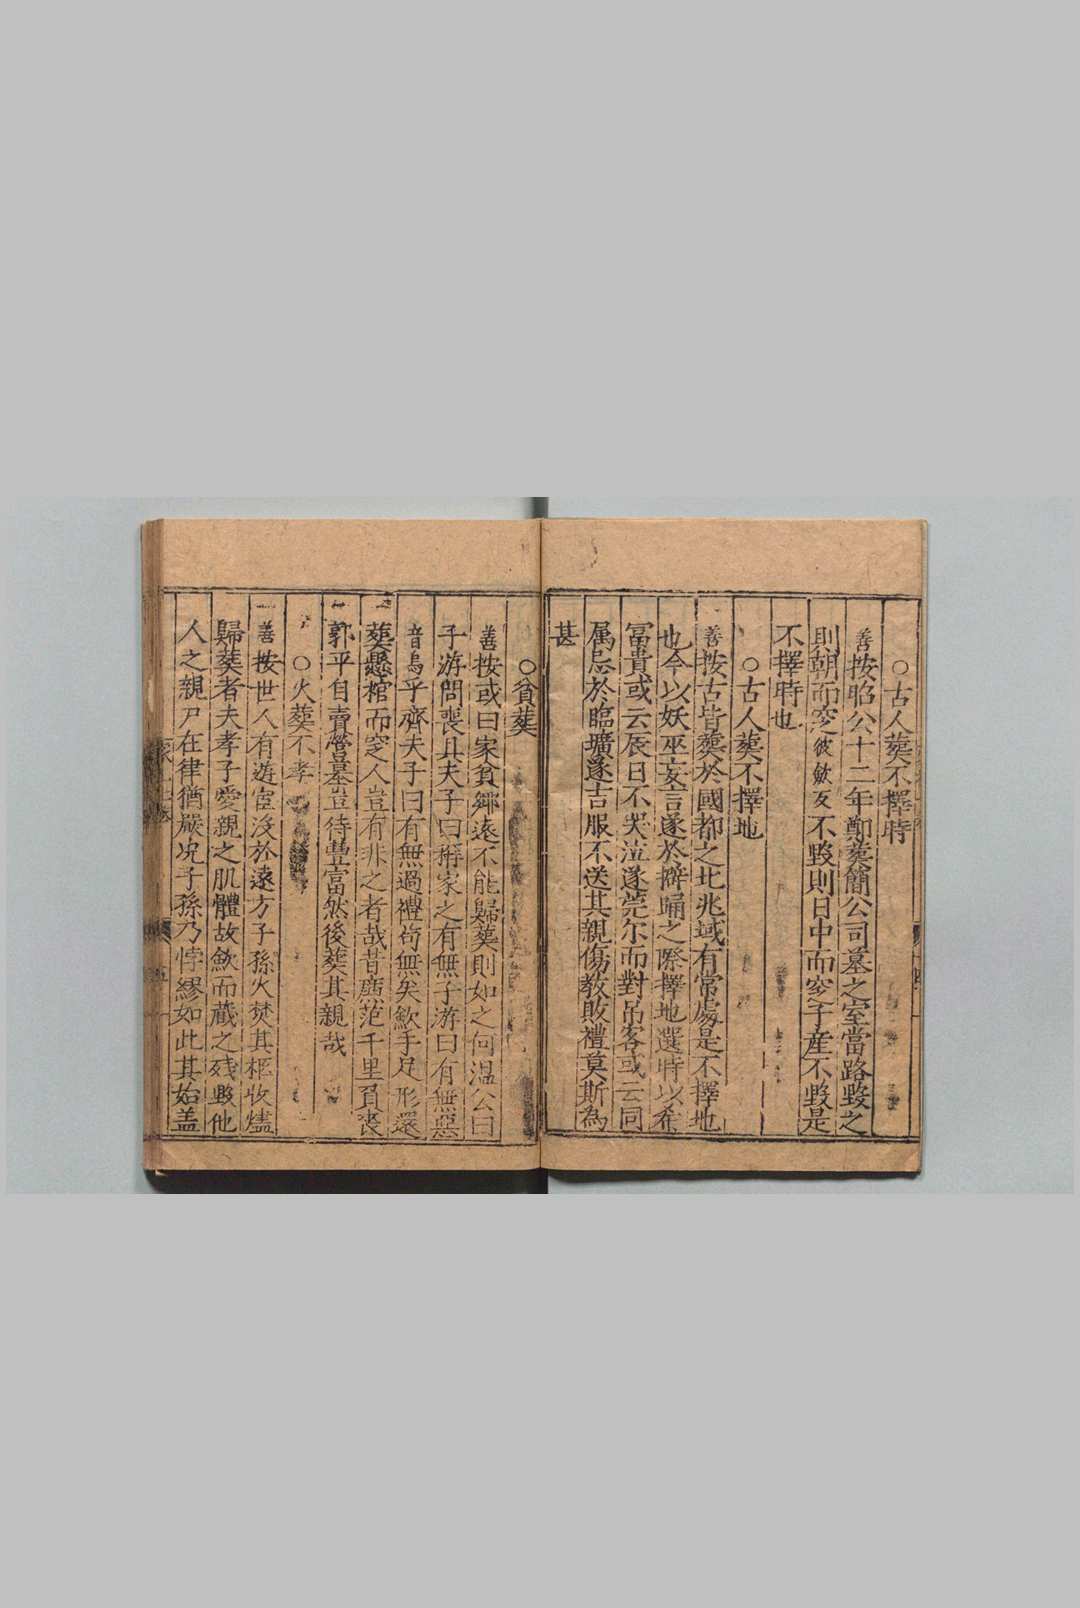 ○古人葬不擇時
善按昭公十二年鄭葬簡公司墓之室當路毀之
則朝而窆彼斂反不毀則日中而窆子產不毀是
不擇時也
○古人葬不擇地
善按古皆葬於國都之北兆域有常處是不擇地
也今以妖巫妄言遂於擗踊之際擇地選時以希
冨貴或云辰日不哭泣遂莞尔而對吊客或云同
属忌於臨壙遂吉服不送其親傷教敗禮莫斯為
甚
○貧葬
善按或曰家貧鄉遠不能歸葬則如之何温公曰
子游問喪具夫子曰稱家之有無子游曰有無惡
音烏乎齊夫子曰有無過禮苟無矣歛手足形還
葬懸棺而窆人豈有非之者哉昔廉范千里負喪
郭平自賣營墓豈待豊富然後葬其親哉
○火葬不孝
善按世人有遊宦没於遠方子孫火焚其柩收燼
歸葬者夫孝子愛親之肌體故歛而藏之残毀他
人之親尸在律猶嚴况子孫乃悖繆如此其始盖